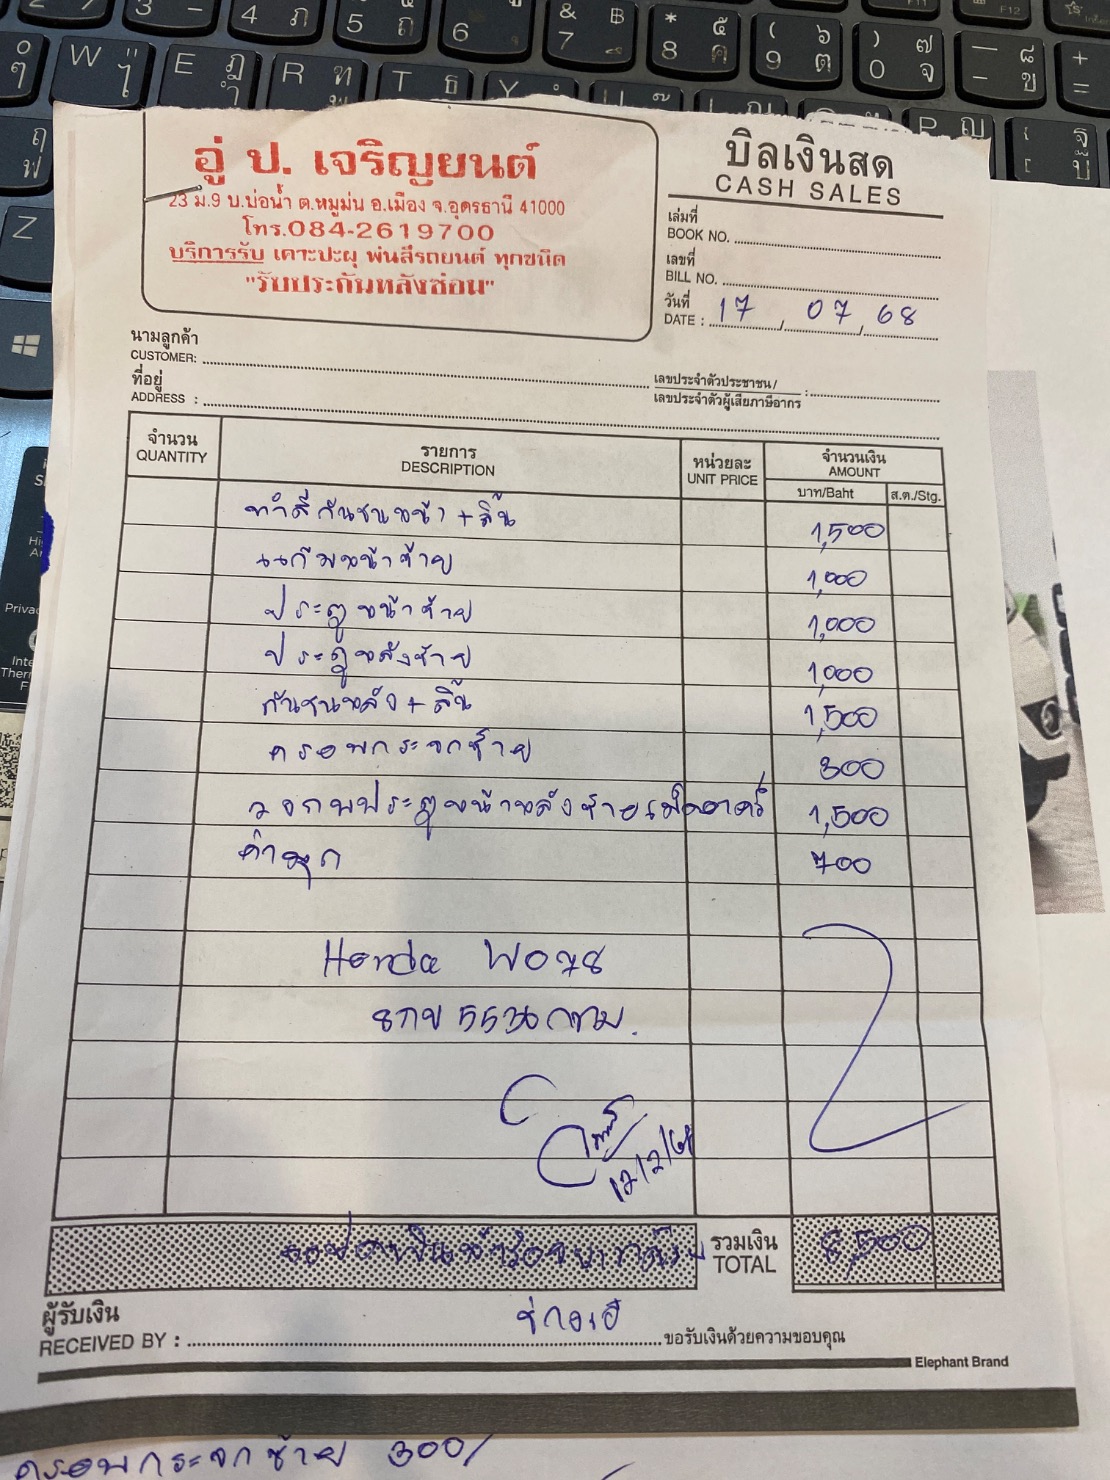 อู่ ป. เจริญยนต์
23 ม.9 บ.บ่อน้ำ ต.หมูม่น อ.เมือง จ.อุดรธานี 41000
โทร.084-2619700
บริการรับ เคาะปะผุ พ่นสีรถยนต์ ทุกชนิด
"รับประกันหลังซ่อม"
บิลเงินสด
CASH SALES
เล่มที่
BOOK NO.
เลขที่
BILL NO.
วันที่
DATE : 17 / 07 / 68
นามลูกค้า
CUSTOMER:
ที่อยู่
ADDRESS :
เลขประจำตัวประชาชน/
เลขประจำตัวผู้เสียภาษีอากร :
จำนวน
QUANTITY
รายการ
DESCRIPTION
หน่วยละ
UNIT PRICE
จำนวนเงิน
AMOUNT
บาท/Baht ส.ต./Stg.
ทำสีกันชนหน้า + ลิ้น 1,500
แก้มหน้าซ้าย 1,000
ประตูหน้าซ้าย 1,000
ประตูหลังซ้าย 1,000
กันชนหลัง + ลิ้น 1,500
ครอบกระจกซ้าย 300
ประตูหน้าหลังซ้าย 1,500
700
Honda
12/2/68
รวมเงิน
TOTAL 8,500
ผู้รับเงิน
RECEIVED BY :
ขอรับเงินด้วยความขอบคุณ
Elephant Brand
ครอบกระจกซ้าย 300/